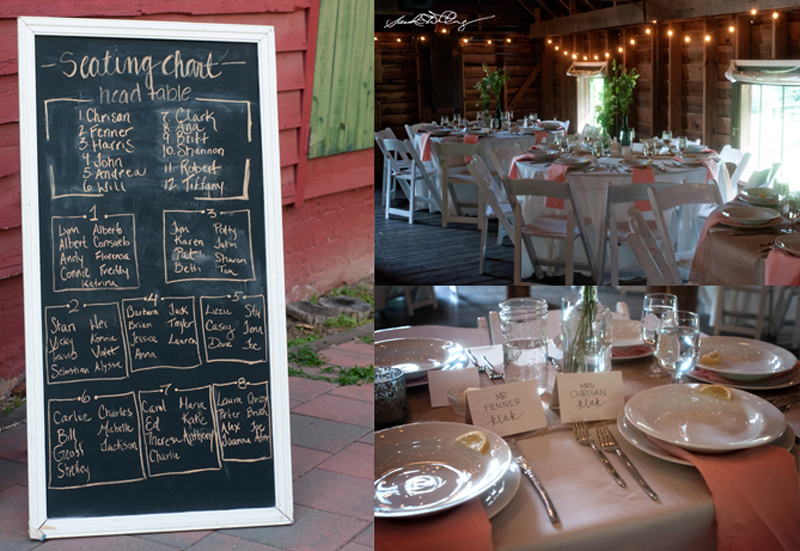 - Seating chart -
head table
1 Chrisan
2 Fenner
3 Harris
4 John
5 Andrea
6 Will
7 Clark
8. Ana
9 Britt
10. Shannon
11 Robert
12 Tiffany
1
Lynn Alberto
Albert Consuelo
Andy Florencia
Connie Freddy
Katrina
3
Jim Patty
Karen John
Pat Sharon
Beth Tom
2
Stan Wes
Vicky Konnie
David Violet
Sebastian Alysse
4
Barbara Jack
Brian Taylor
Jessica Lauren
Anna
5
Lizzie Sty
Casey Jenn
Dave Joe
6
Carlie Charles
Bill Michelle
Geoff Jackson
Shelley
7
Carol Maria
Ed Katie
Theresa Anthony
Charlie
8
Laura
Peter
Alex Joe
Joanna
MR.
FENNER
klek
MRS.
CHRISAN
klek